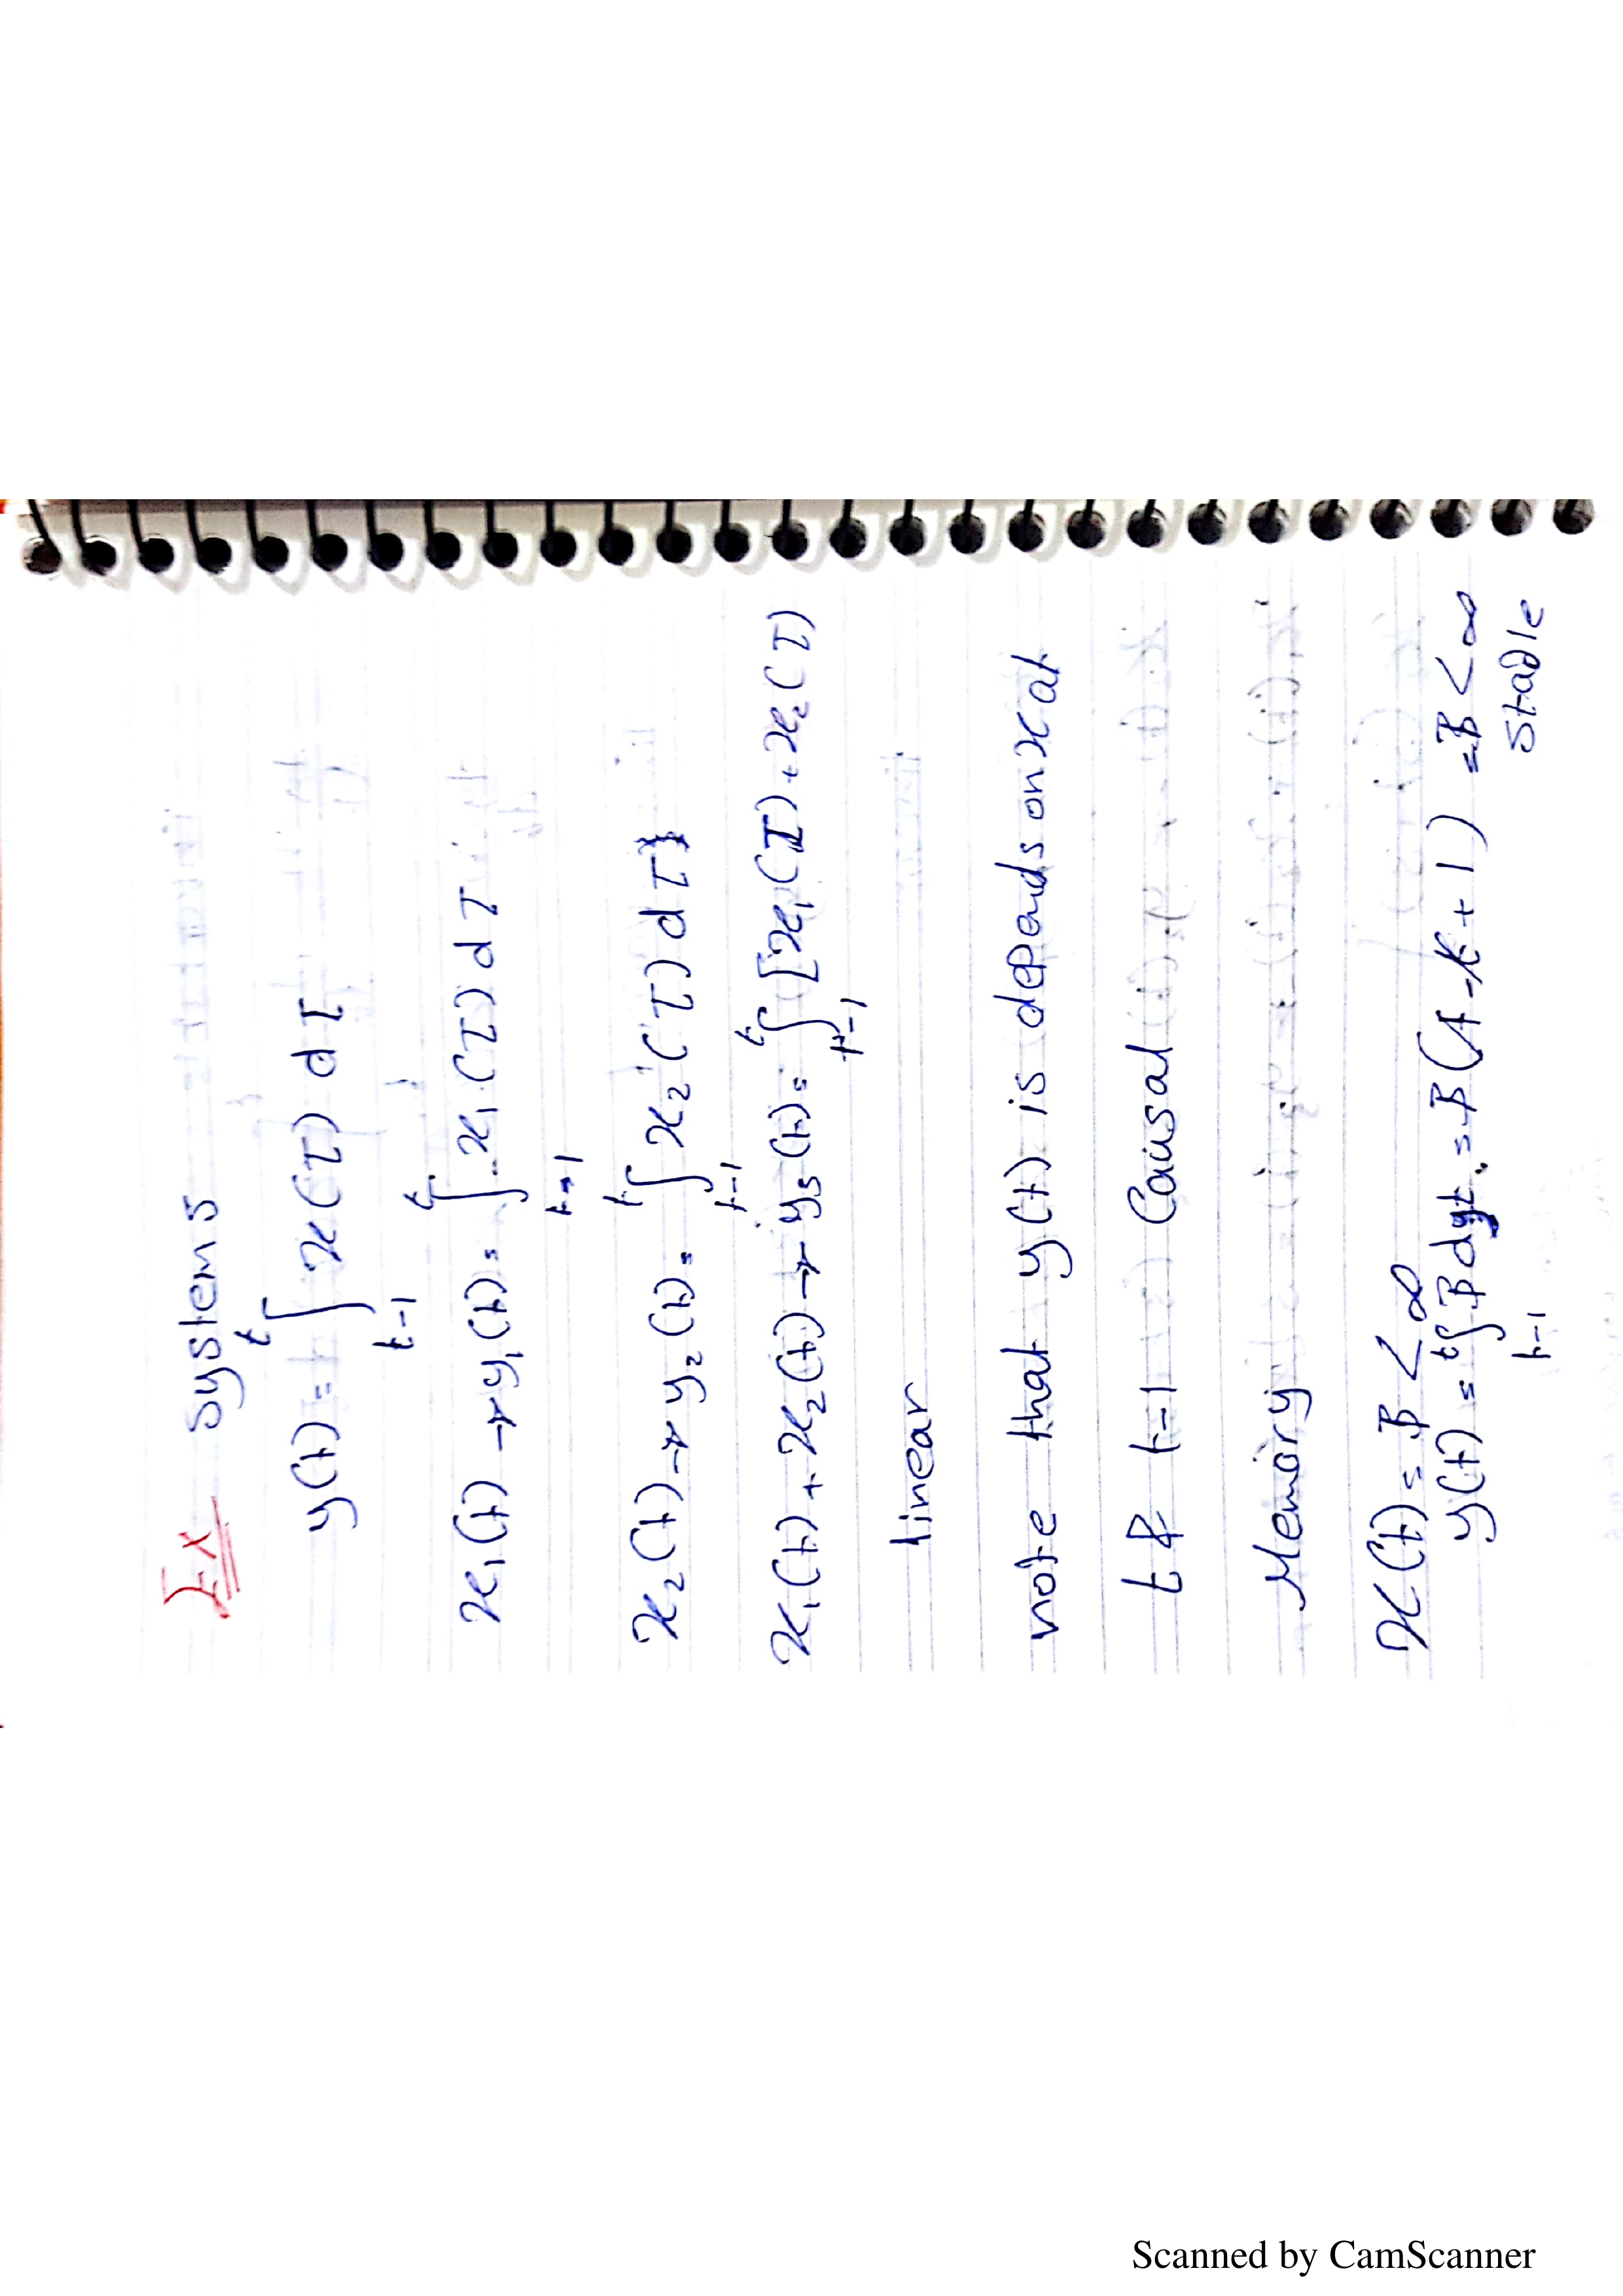 Ex systems
y(t) = ∫_{t-1}^{t} x(τ) dτ
x₁(t) → y₁(t) = ∫_{t-1}^{t} x₁(τ) dτ
x₂(t) → y₂(t) = ∫_{t-1}^{t} x₂(τ) dτ}
x₁(t) + x₂(t) → y₃(t) = ∫_{t-1}^{t} [x₁(τ) + x₂(τ)
linear
note that y(t) is depends on x at
t & t-1 Causal
Memory
x(t) = B < ∞
y(t) = ∫_{t-1}^{t} B dt = B(t-t+1) = B < ∞
Stable
Scanned by CamScanner